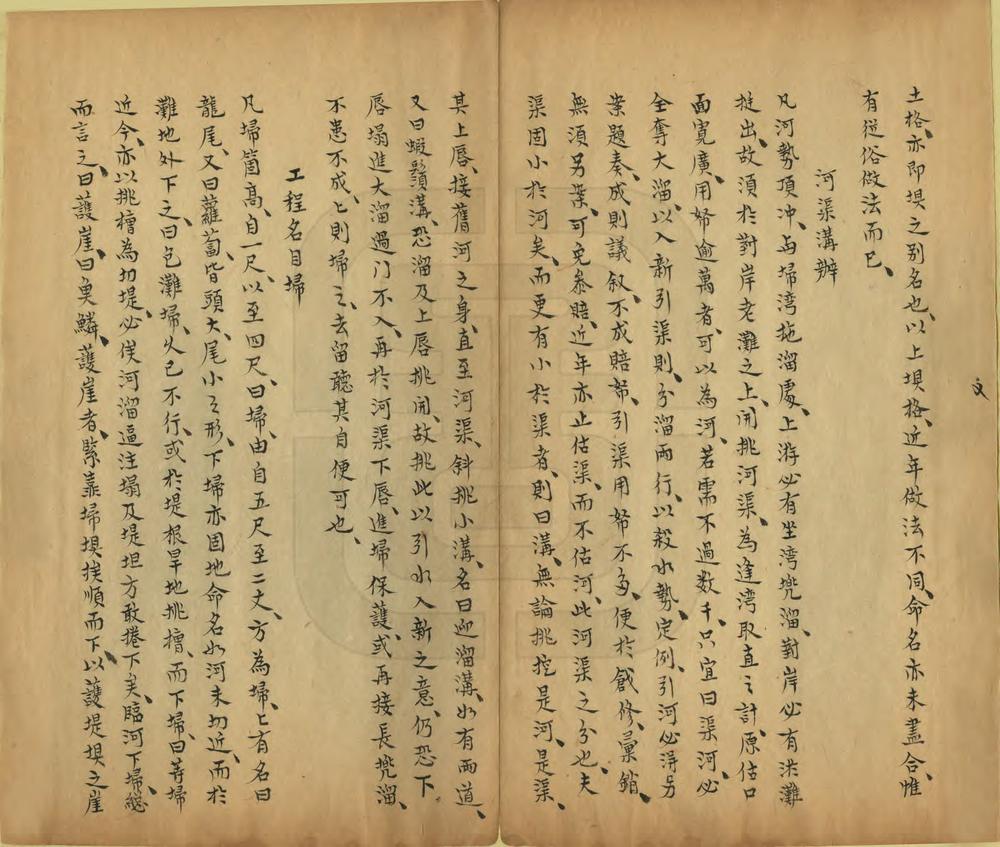 土格、亦即垻之别名也、以上垻格、近年做法不同、命名亦未盡合、惟
有従俗做法而已、
河渠溝辨
凡河勢頂冲、与埽湾拖溜處、上游必有坐湾兠溜、對岸必有㳰灘
挺出、故須於對岸老灘之上、開挑河渠、為逢湾取直之計、原估口
面寛廣、用帑逾萬者、可以為河、若需不過数千、只宜曰渠、河必
全奪大溜、以入新引渠則、分溜兩行、以殺水勢、定例、引河必淂另
案題奏、成則議叙、不成賠帑、引渠用帑不多、便於餞修、彚銷、
無須另案、可免叅賠、近年亦止估渠、而不估河、此河渠之分也、夫
渠固小於河矣、而更有小於渠者、則曰溝、無論挑挖是河、是渠、
其上唇、接舊河之身、直至河渠、斜挑小溝、名曰迎溜溝、如有兩道、
又曰蝦鬚溝、恐溜及上唇挑開、故挑此以引水入新之意、仍恐下
唇塌進大溜過门不入、再於河渠下唇、進埽保護、或再接長兠溜、
不患不成、上則埽之、去留聽其自便可也、
工程名目埽
凡埽箇高、自一尺、以至四尺、曰埽、由自五尺至二丈、方為埽、上有名曰
龍尾、又曰蘿蔔、皆頭大、尾小之形、下埽亦因地命名、如河未切近、而於
灘地外下之、曰包灘埽、火已不行、或於堤根旱地挑擔、而下埽、曰等埽
近今、亦以挑檜為切堤、必俟河溜逼注塌及堤坦方敢捲下矣、臨河下埽、總
而言之、曰護崖、曰奐鱗、護崖者、緊靠埽垻挨順而下、以護堤垻之崖
文